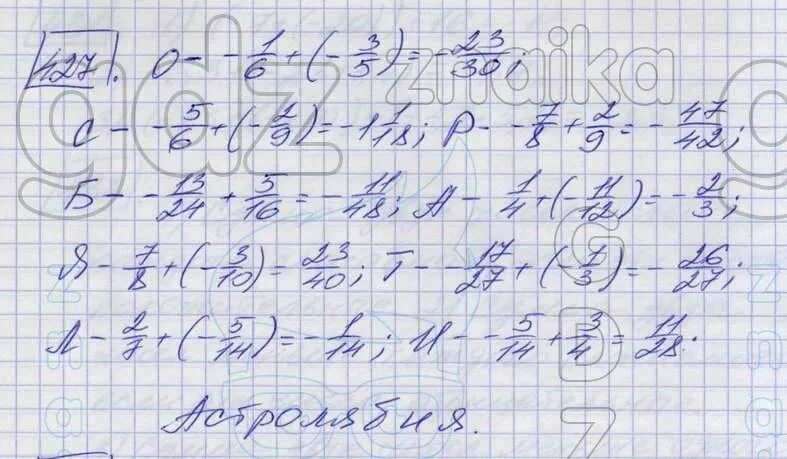 427. О - -1/6 + (-3/5) = -23/30;
С - -5/6 + (-2/9) = -1 1/18; Р - -7/8 + 2/9 = -47/42;
Б - -13/24 + 5/16 = -11/48; А - 1/4 + (-11/12) = -2/3;
Я - 7/8 + (-3/10) = 23/40; Т - -17/27 + (-1/3) = -26/27;
Л - 2/7 + (-5/14) = -1/14; И - -5/14 + 3/4 = 11/28.
Астролябия.
gdz znaika
GDZ